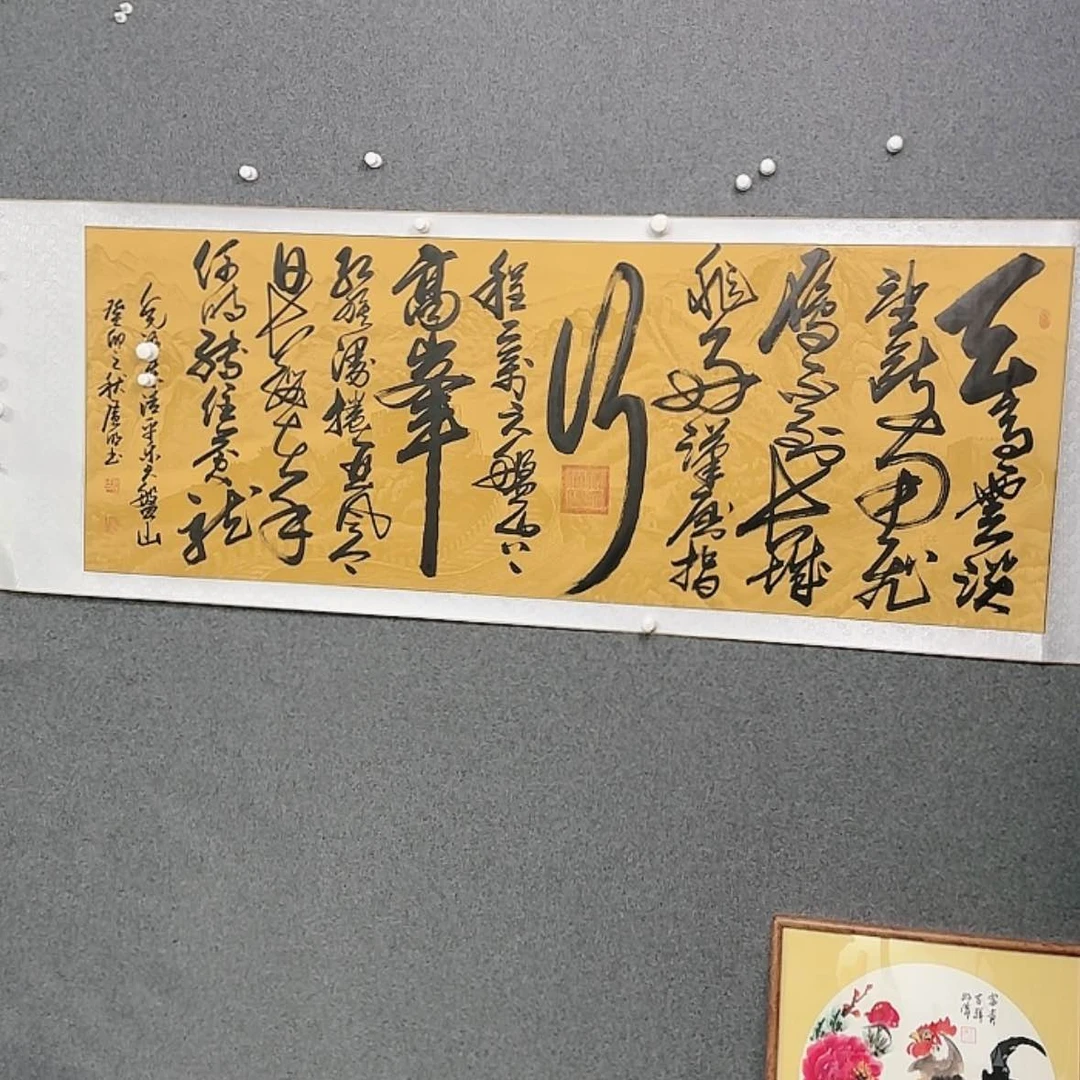 天高雲淡
望断南飛
雁不到長城
非好漢屈指
行
程二萬六盤山上
高峯
紅旗漫捲西風今
日長纓在手
何時縛住蒼龍
毛澤東清平乐六盤山
癸卯之秋 書
富貴
吉祥